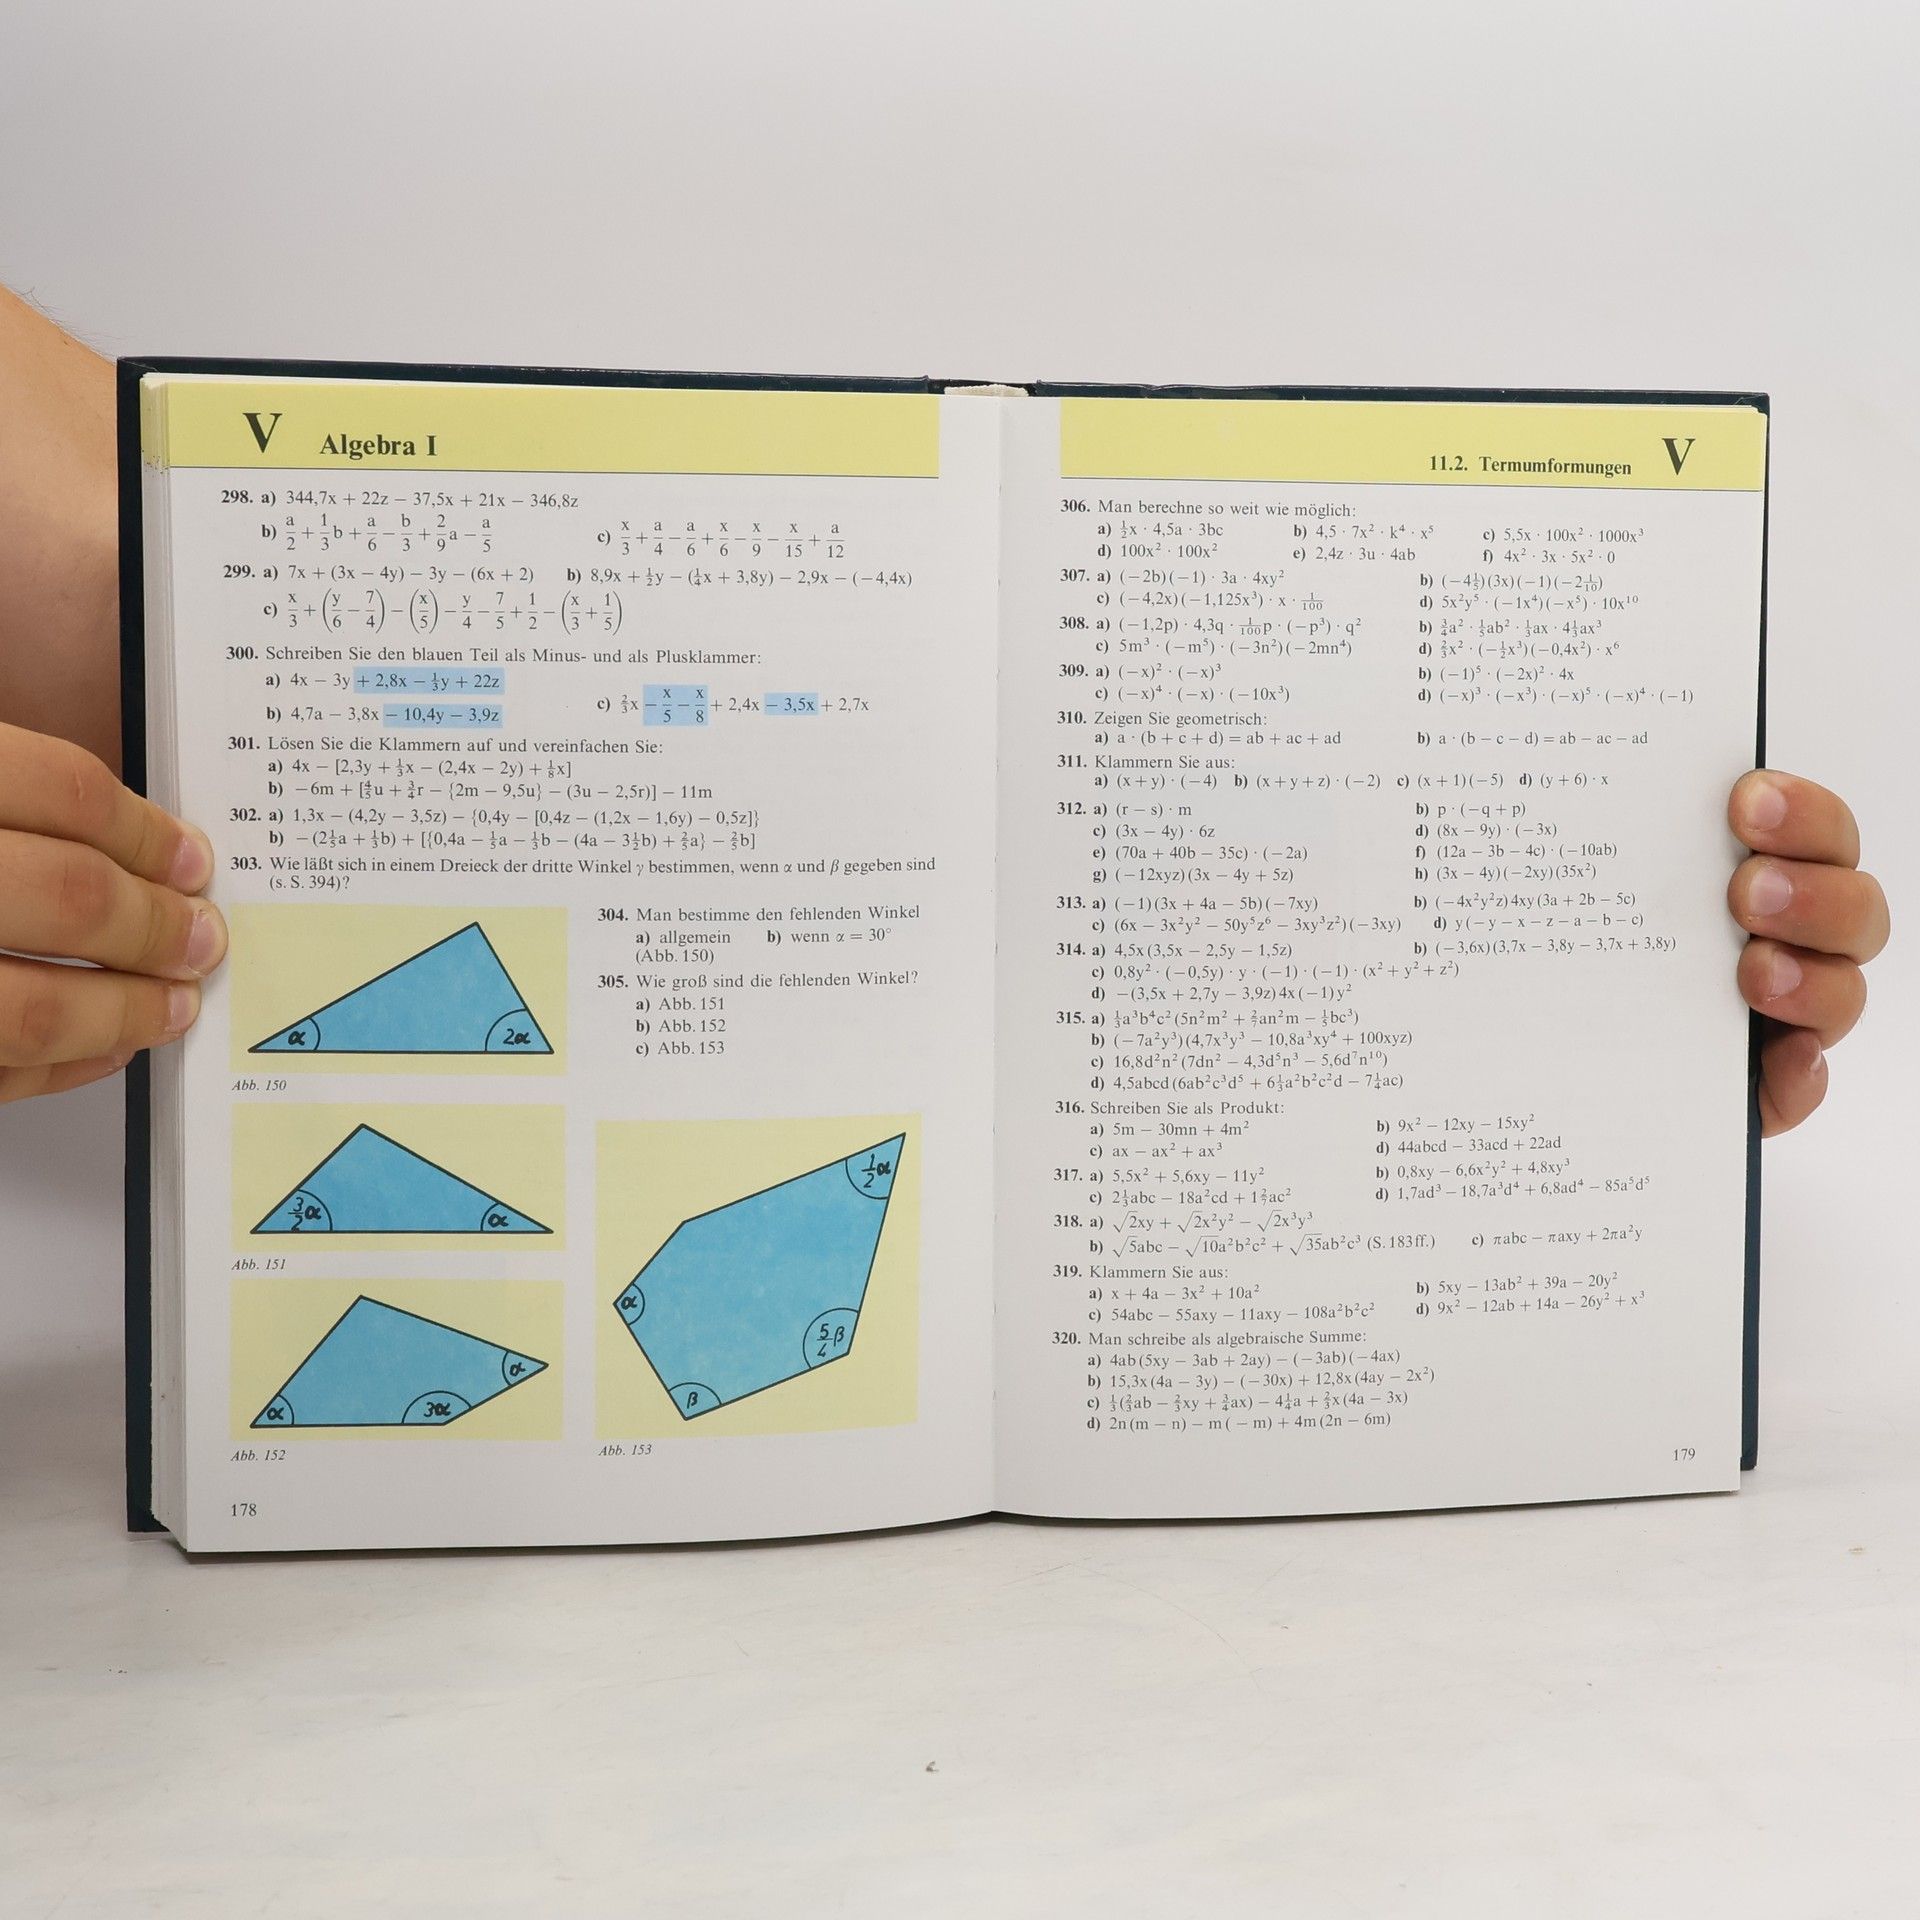 V Algebra I
298. a) 344,7x + 22z − 37,5x + 21x − 346,8z
b) a/2 + 1/3 b + a/6 − b/3 + 2/9 a − a/5 c) x/3 + a/4 − a/6 + x/6 − x/9 − x/15 + a/12
299. a) 7x + (3x − 4y) − 3y − (6x + 2) b) 8,9x + ½y − (¼x + 3,8y) − 2,9x − (−4,4x)
c) x/3 + (y/6 − 7/4) − (x/5) − y/4 − 7/5 + 1/2 − (x/3 + 1/5)
300. Schreiben Sie den blauen Teil als Minus- und als Plusklammer:
a) 4x − 3y + 2,8x − ⅓y + 22z
b) 4,7a − 3,8x − 10,4y − 3,9z c) ⅔x − x/5 − x/8 + 2,4x − 3,5x + 2,7x
301. Lösen Sie die Klammern auf und vereinfachen Sie:
a) 4x − [2,3y + ⅓x − (2,4x − 2y) + ⅛x]
b) −6m + [⅘u + ¾r − {2m − 9,5u} − (3u − 2,5r)] − 11m
302. a) 1,3x − (4,2y − 3,5z) − {0,4y − [0,4z − (1,2x − 1,6y) − 0,5z]}
b) −(2⅓a + ⅓b) + [{0,4a − ⅓a − ⅓b − (4a − 3½b) + ⅔a} − ⅖b]
303. Wie läßt sich in einem Dreieck der dritte Winkel γ bestimmen, wenn α und β gegeben sind
(s. S. 394)?
304. Man bestimme den fehlenden Winkel
a) allgemein b) wenn α = 30°
(Abb. 150)
305. Wie groß sind die fehlenden Winkel?
a) Abb. 151
b) Abb. 152
c) Abb. 153
α 2α
Abb. 150
3/2 α α
Abb. 151
α 3α α
Abb. 152
½α
α
5/4 β
β
Abb. 153
178
11.2. Termumformungen V
306. Man berechne so weit wie möglich:
a) ½x · 4,5a · 3bc b) 4,5 · 7x² · k⁴ · x⁵ c) 5,5x · 100x² · 1000x³
d) 100x² · 100x² e) 2,4z · 3u · 4ab f) 4x² · 3x · 5x² · 0
307. a) (−2b)(−1) · 3a · 4xy² b) (−4⅕)(3x)(−1)(−2 1/10)
c) (−4,2x)(−1,125x³) · x · 1/100 d) 5x²y⁵ · (−1x⁴)(−x⁵) · 10x¹⁰
308. a) (−1,2p) · 4,3q · 1/100 p · (−p³) · q² b) ¾a² · ⅕ab² · ⅓ax · 4⅓ax³
c) 5m³ · (−m⁵) · (−3n²)(−2mn⁴) d) ⅔x² · (−½x³)(−0,4x²) · x⁶
309. a) (−x)² · (−x)³ b) (−1)⁵ · (−2x)² · 4x
c) (−x)⁴ · (−x) · (−10x³) d) (−x)³ · (−x³) · (−x)⁵ · (−x)⁴ · (−1)
310. Zeigen Sie geometrisch:
a) a · (b + c + d) = ab + ac + ad b) a · (b − c − d) = ab − ac − ad
311. Klammern Sie aus:
a) (x + y) · (−4) b) (x + y + z) · (−2) c) (x + 1)(−5) d) (y + 6) · x
312. a) (r − s) · m b) p · (−q + p)
c) (3x − 4y) · 6z d) (8x − 9y) · (−3x)
e) (70a + 40b − 35c) · (−2a) f) (12a − 3b − 4c) · (−10ab)
g) (−12xyz)(3x − 4y + 5z) h) (3x − 4y)(−2xy)(35x²)
313. a) (−1)(3x + 4a − 5b)(−7xy) b) (−4x²y²z) 4xy(3a + 2b − 5c)
c) (6x − 3x²y² − 50y⁵z⁶ − 3xy³z²)(−3xy) d) y(−y − x − z − a − b − c)
314. a) 4,5x(3,5x − 2,5y − 1,5z) b) (−3,6x)(3,7x − 3,8y − 3,7x + 3,8y)
c) 0,8y² · (−0,5y) · y · (−1) · (−1) · (x² + y² + z²)
d) −(3,5x + 2,7y − 3,9z) 4x(−1)y²
315. a) ⅓a³b⁴c²(5n²m² + 2/7 an²m − ⅕bc³)
b) (−7a²y³)(4,7x³y³ − 10,8a³xy⁴ + 100xyz)
c) 16,8d²n²(7dn² − 4,3d⁵n³ − 5,6d⁷n¹⁰)
d) 4,5abcd(6ab²c³d⁵ + 6⅓a²b²c²d − 7¼ac)
316. Schreiben Sie als Produkt:
a) 5m − 30mn + 4m² b) 9x² − 12xy − 15xy²
c) ax − ax² + ax³ d) 44abcd − 33acd + 22ad
317. a) 5,5x² + 5,6xy − 11y² b) 0,8xy − 6,6x²y² + 4,8xy³
c) 2⅓abc − 18a²cd + 1 2/7 ac² d) 1,7ad³ − 18,7a³d⁴ + 6,8ad⁴ − 85a⁵d⁵
318. a) √2xy + √2x²y² − √2x³y³
b) √5abc − √10a²b²c² + √35ab²c³ (S. 183ff.) c) πabc − πaxy + 2πa²y
319. Klammern Sie aus:
a) x + 4a − 3x² + 10a² b) 5xy − 13ab² + 39a − 20y²
c) 54abc − 55axy − 11axy − 108a²b²c² d) 9x² − 12ab + 14a − 26y² + x³
320. Man schreibe als algebraische Summe:
a) 4ab(5xy − 3ab + 2ay) − (−3ab)(−4ax)
b) 15,3x(4a − 3y) − (−30x) + 12,8x(4ay − 2x²)
c) ⅓(⅔ab − ⅔xy + ¾ax) − 4¼a + ⅔x(4a − 3x)
d) 2n(m − n) − m(−m) + 4m(2n − 6m)
179